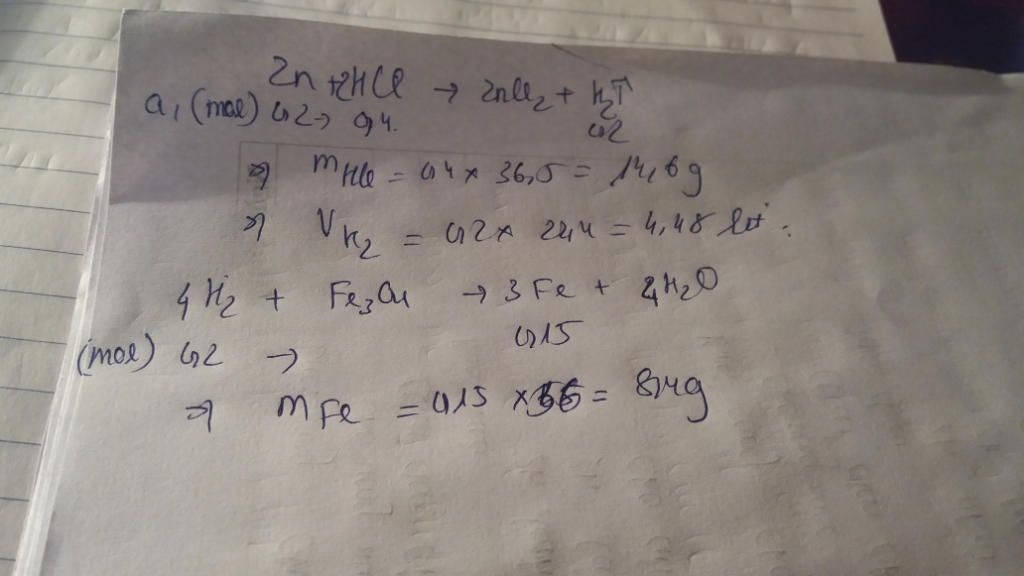 Zn + 2HCl → ZnCl₂ + H₂↑
a, (mol) 0,2 → 0,4. 0,2
=> mHCl = 0,4 x 36,5 = 14,6g
=> VH₂ = 0,2 x 22,4 = 4,48 lít.
4H₂ + Fe₃O₄ → 3Fe + 4H₂O
(mol) 0,2 → 0,15
=> mFe = 0,15 x 56 = 8,4g